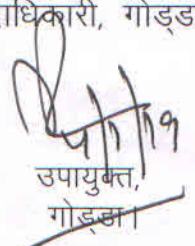 ाधिकारी, गोड्ड
उपायुक्त,
गोड्डा।